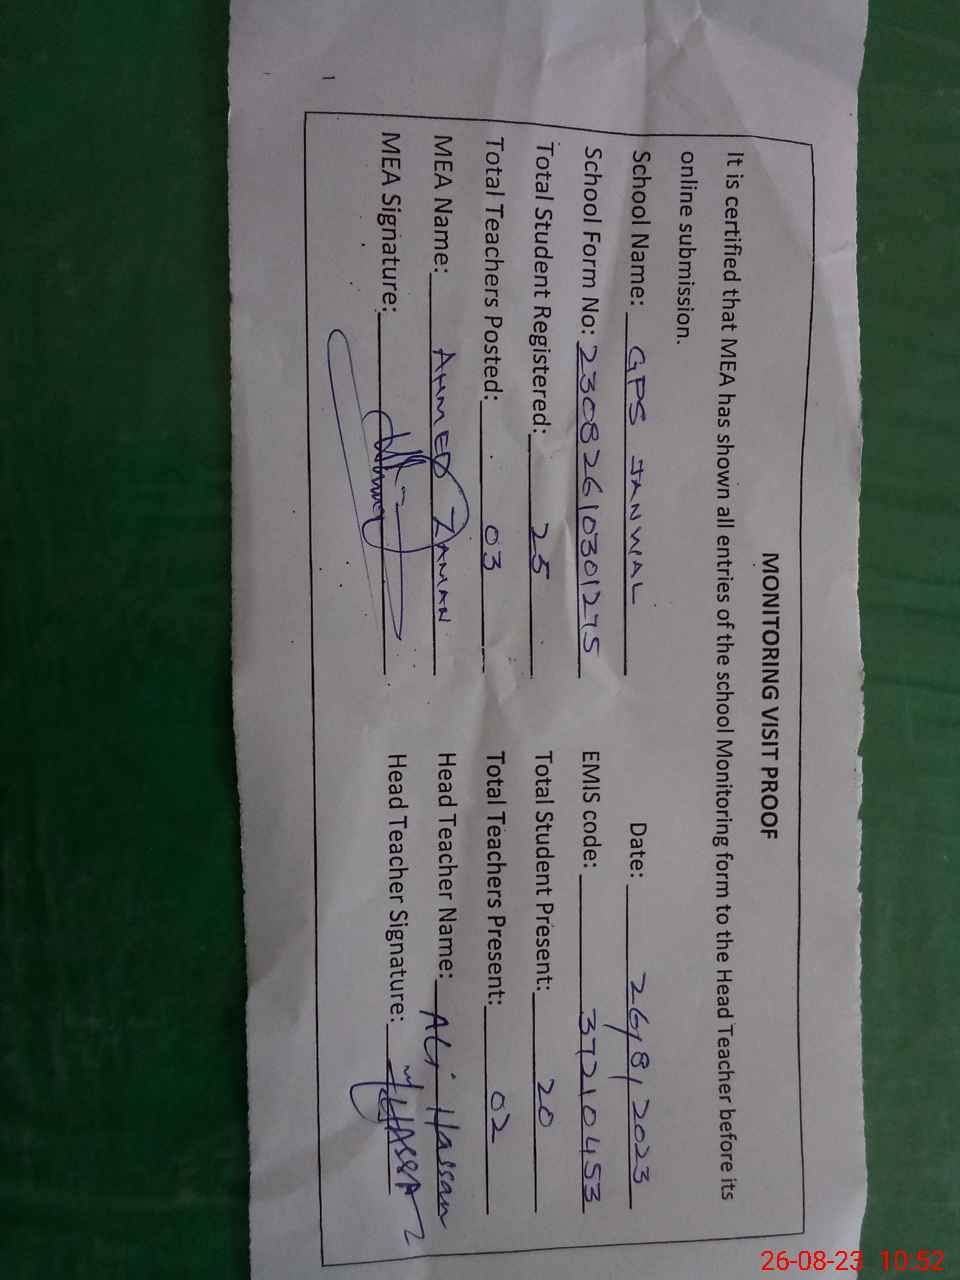 MONITORING VISIT PROOF
It is certified that MEA has shown all entries of the school Monitoring form to the Head Teacher before its
online submission.
School Name: GPS JANWAL Date: 26/8/2023
School Form No: 23082610301275 EMIS code: 37210453
Total Student Registered: 25 Total Student Present: 20
Total Teachers Posted: 03 Total Teachers Present: 02
MEA Name: AHMED ZAMAN Head Teacher Name: ALi Hassan
MEA Signature: Head Teacher Signature:
1
26-08-23 10:52